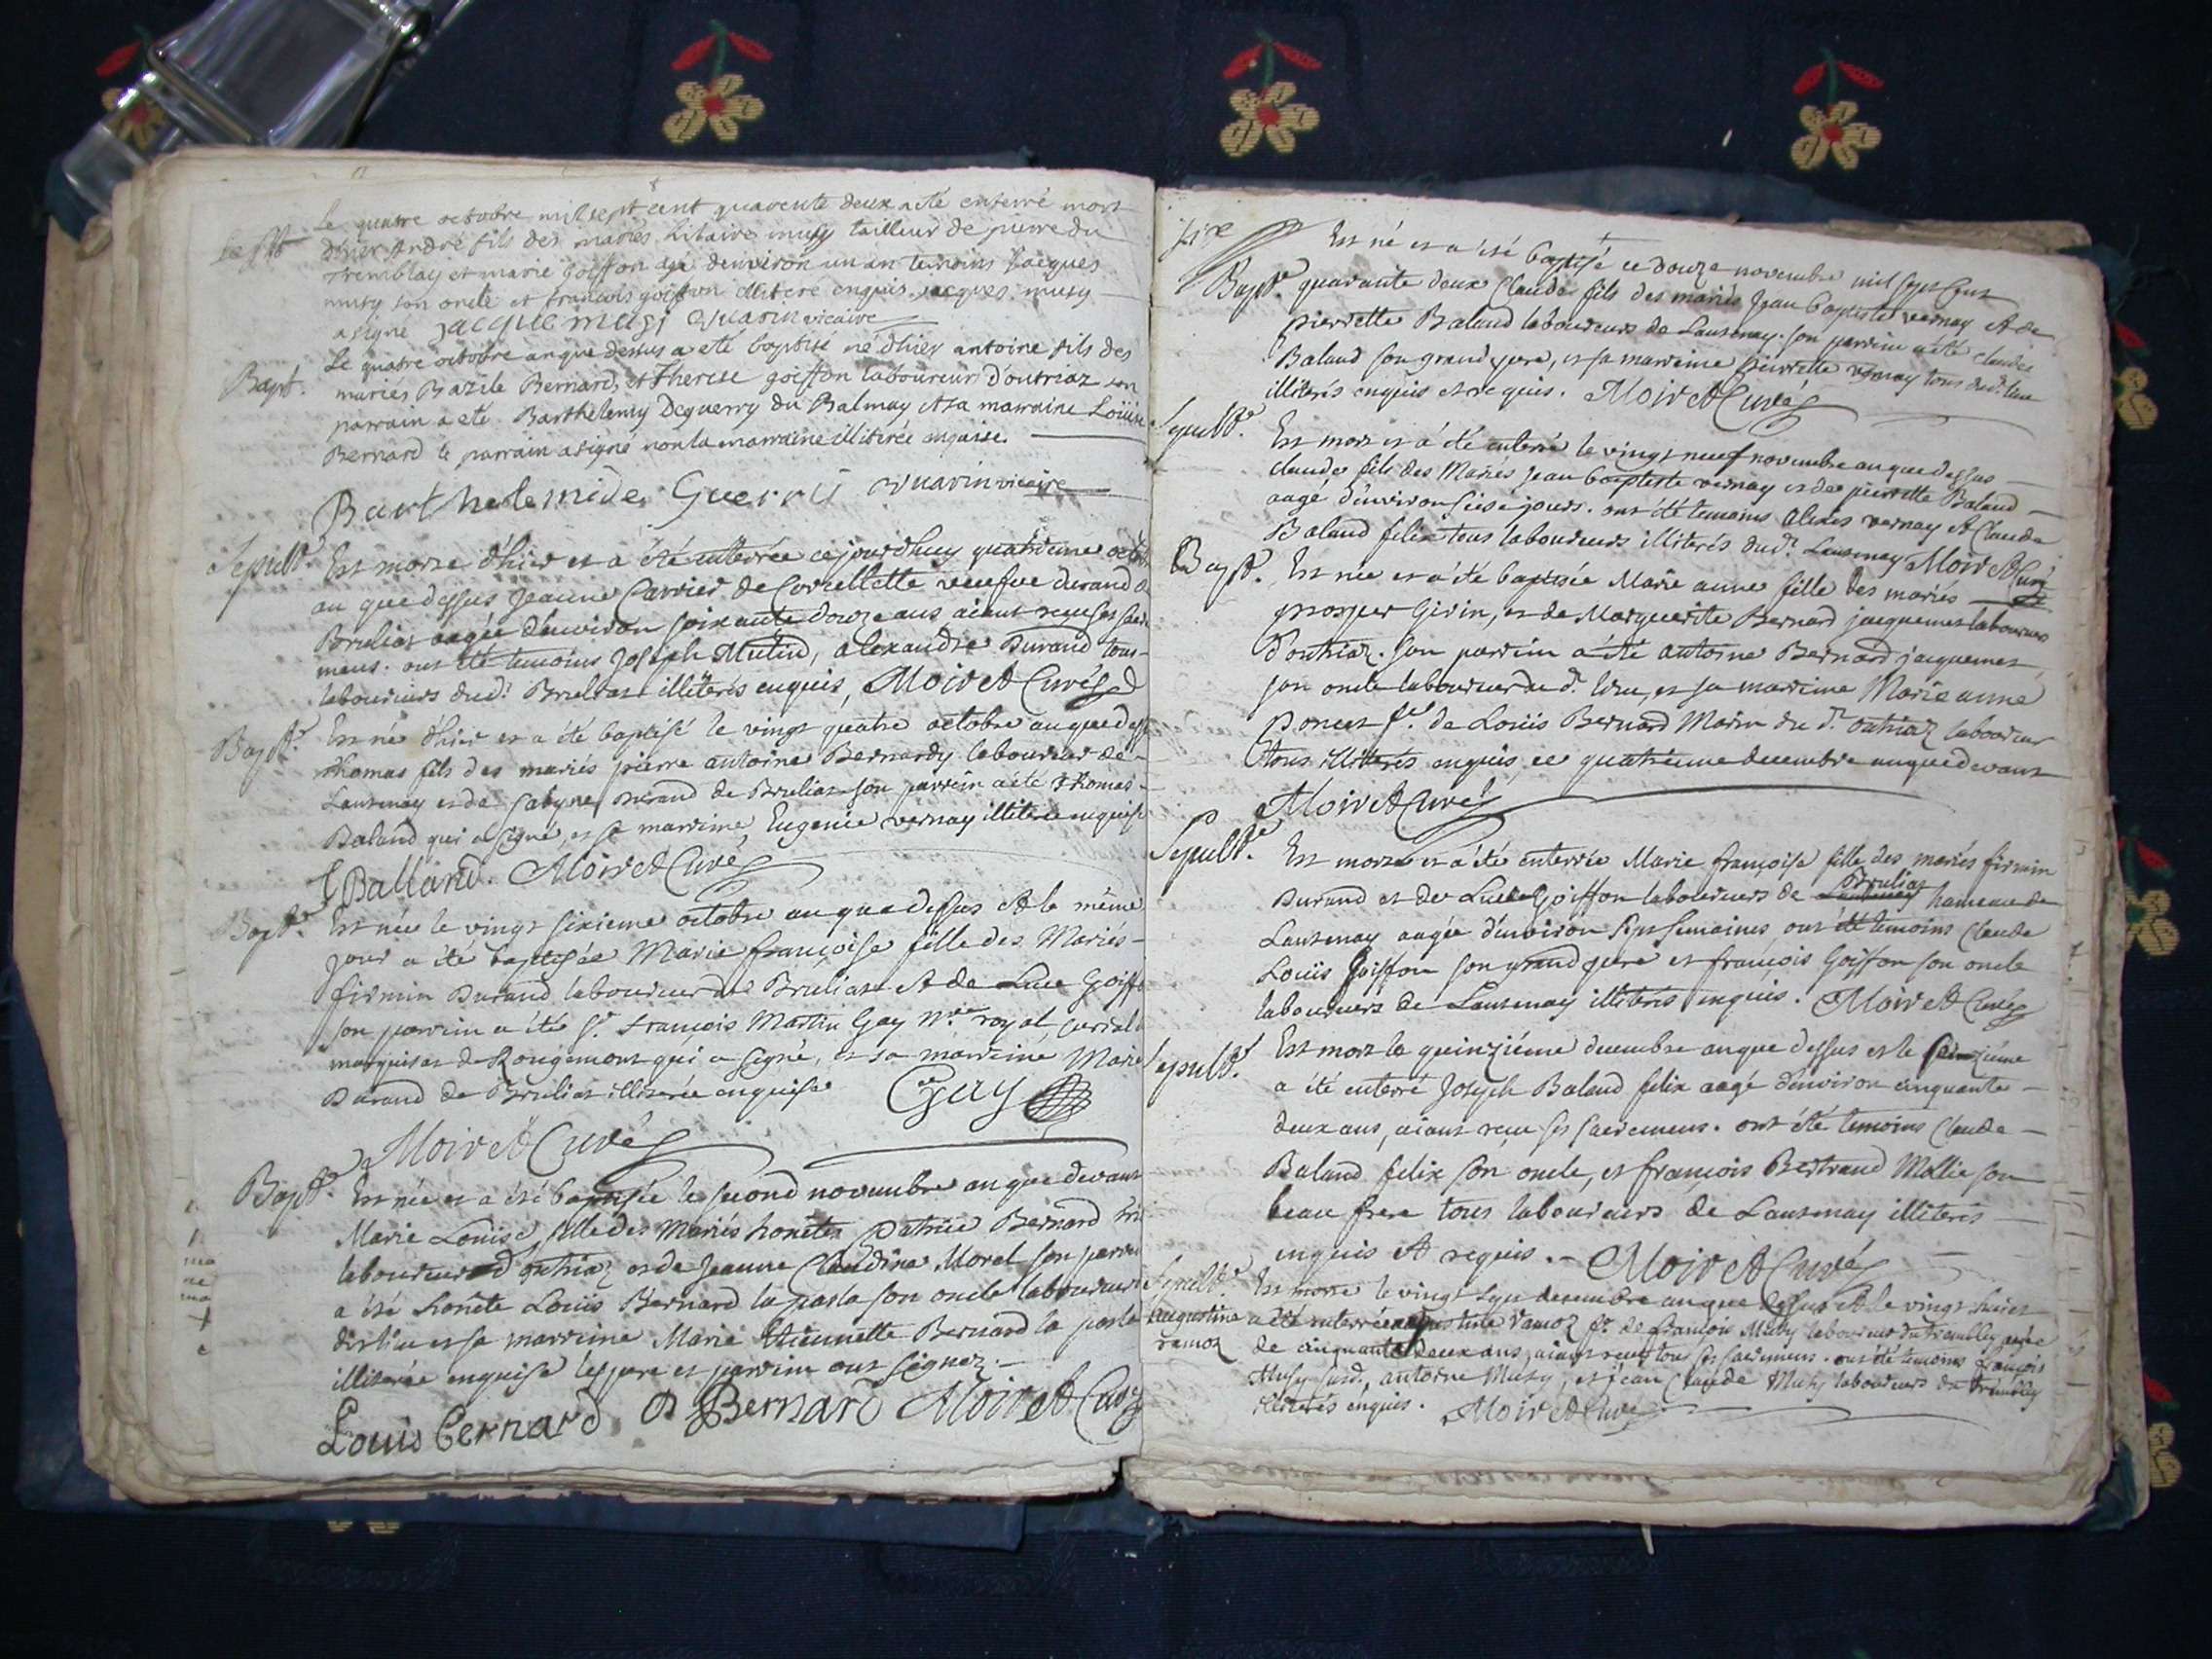 Le quatre octobre mil sept cent quarente deux a eté enterré mort
dhier André fils des mariés hilaire musy tailleur de pierre du
Tremblay et marie goiffon agé denviron un an temoins Jacques
musy son oncle et francois goiffon illiteré enquis, jacques musy
a signé jacque musi vuarin vicaire
Bapt. Le quatre octobre an que dessus a eté baptisé né d'hier antoine fils des
mariés Bazile Bernard, et Therese goiffon laboureur d'outriaz son
parrain a eté Barthelemy Deguerry du Balmay et sa marraine Loüise
Bernard le parrain a signé non la marraine illiterée enquise.
Barthelemi de Guerri vuarin vicaire
Sepult. Est morte d'hier et a été enterrée ce jourdhuy quatrieme
an que dessus Jeanne Carrier de Corcellette veufve Durand
Brulias aagée d'environ soixante douze ans, aiant reçu ses
mens. ont été temoins Joseph Mutin, alexandre Durand tous
laboureurs dud. Brulias illiterés enquis, Moiret Curé
Bapt. Est né d'hier et a été baptisé le vingt quatre octobre an que
Thomas fils des mariés pierre antoine Bernardy laboureur de
Lantenay et de Sabyne Durand de Brulias son parrin a été Thomas
Baland qui a signé, et sa marrine Eugenie vernay illiterée enquise
T Balland. Moiret Curé
Bapt. Est née le vingt sixieme octobre an que dessus et le même
jour a été baptisée Marie françoise fille des Mariés
firmin Durand laboureur de Brulias et de Luce Goiff
son parrin a été Sr. françois Martin Gay Nre. royal, curial
marquisat de Rougemont qui a signé, et sa marrine Marie
Durand de Brulias illiterée enquise Gay
Moiret Curé
Bapt. Est née et a été baptisée le second novembre an que devant
Marie Louise, fille des Mariés honête patrice Bernard
laboureur d'outriaz et de Jeanne Claudine Morel son parrin
a été honête Loüis Bernard la parla son oncle laboureur
dud. lieu et sa marrine Marie Etiennette Bernard la parla
illiterée enquise les pere et parrin ont signez.
Louis Bernard P Bernard Moiret Curé
Est né et a été baptisé ce douze novembre mil sept cent
Bapt. quarante deux Claude fils des mariés Jean baptiste vernay et de
pierrette Baland laboureurs de Lantenay. son parrin a été claude
Baland son grand pere, et sa marrine pierrette vernay tous dud. lieu
illiterés enquis et requis. Moiret Curé
Sepult. Est mort et a été enterré le vingt neuf novembre an que dessus
claude fils des Mariés Jean baptiste vernay et de pierrette Baland
aagé d'environ seize jours. ont été temoins alexis vernay et Claude
Baland felix tous laboureurs illiterés dud. Lantenay Moiret Curé
Bapt. Est née et a été baptisée Marie anne fille des mariés
prosper Girin, et de Marguerite Bernard jacquemet laboureurs
d'outriaz. son parrin a été antoine Bernard jacquemet
son oncle laboureur du d. lieu, et sa marrine Marie anne
poncet fe. de Loüis Bernard Morin du d. outriaz laboureur
tous illiterés enquis, ce quatrieme decembre an que devant
Moiret Curé
Sepult. Est morte et a été enterrée Marie françoise fille des mariés firmin
Durand et de Luce Goiffon laboureurs de Brulias hameau de
Lantenay aagée d'environ sept semaines ont été temoins Claude
Loüis Goiffon son grand pere et françois Goiffon son oncle
laboureurs de Lantenay illiterés enquis. Moiret Curé
Sepult. Est mort le quinziéme decembre an que dessus et le seiziéme
a été enterré Joseph Baland felix aagé d'environ cinquante
deux ans, aiant reçu ses sacremens. ont été temoins Claude
Baland felix son oncle, et françois Bertrand Mollie son
beau frere tous laboureurs de Lantenay illiterés
enquis et requis. Moiret Curé
Sepult. Est morte le vingt sept decembre an que dessus et le vingt huict
augustine a été enterrée augustine ramoz fe. de françois Musy laboureur du tremblay agée
ramoz de cinquante deux ans, aiant reçu tous ses sacremens. ont été temoins françois
Musy susd., antoine Musy, et jean Claude Musy laboureurs du tremblay
illiterés enquis. Moiret Curé